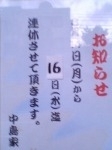 お知らせ
日(月)から
16日(水)迄
連休させて頂きます。
中島家